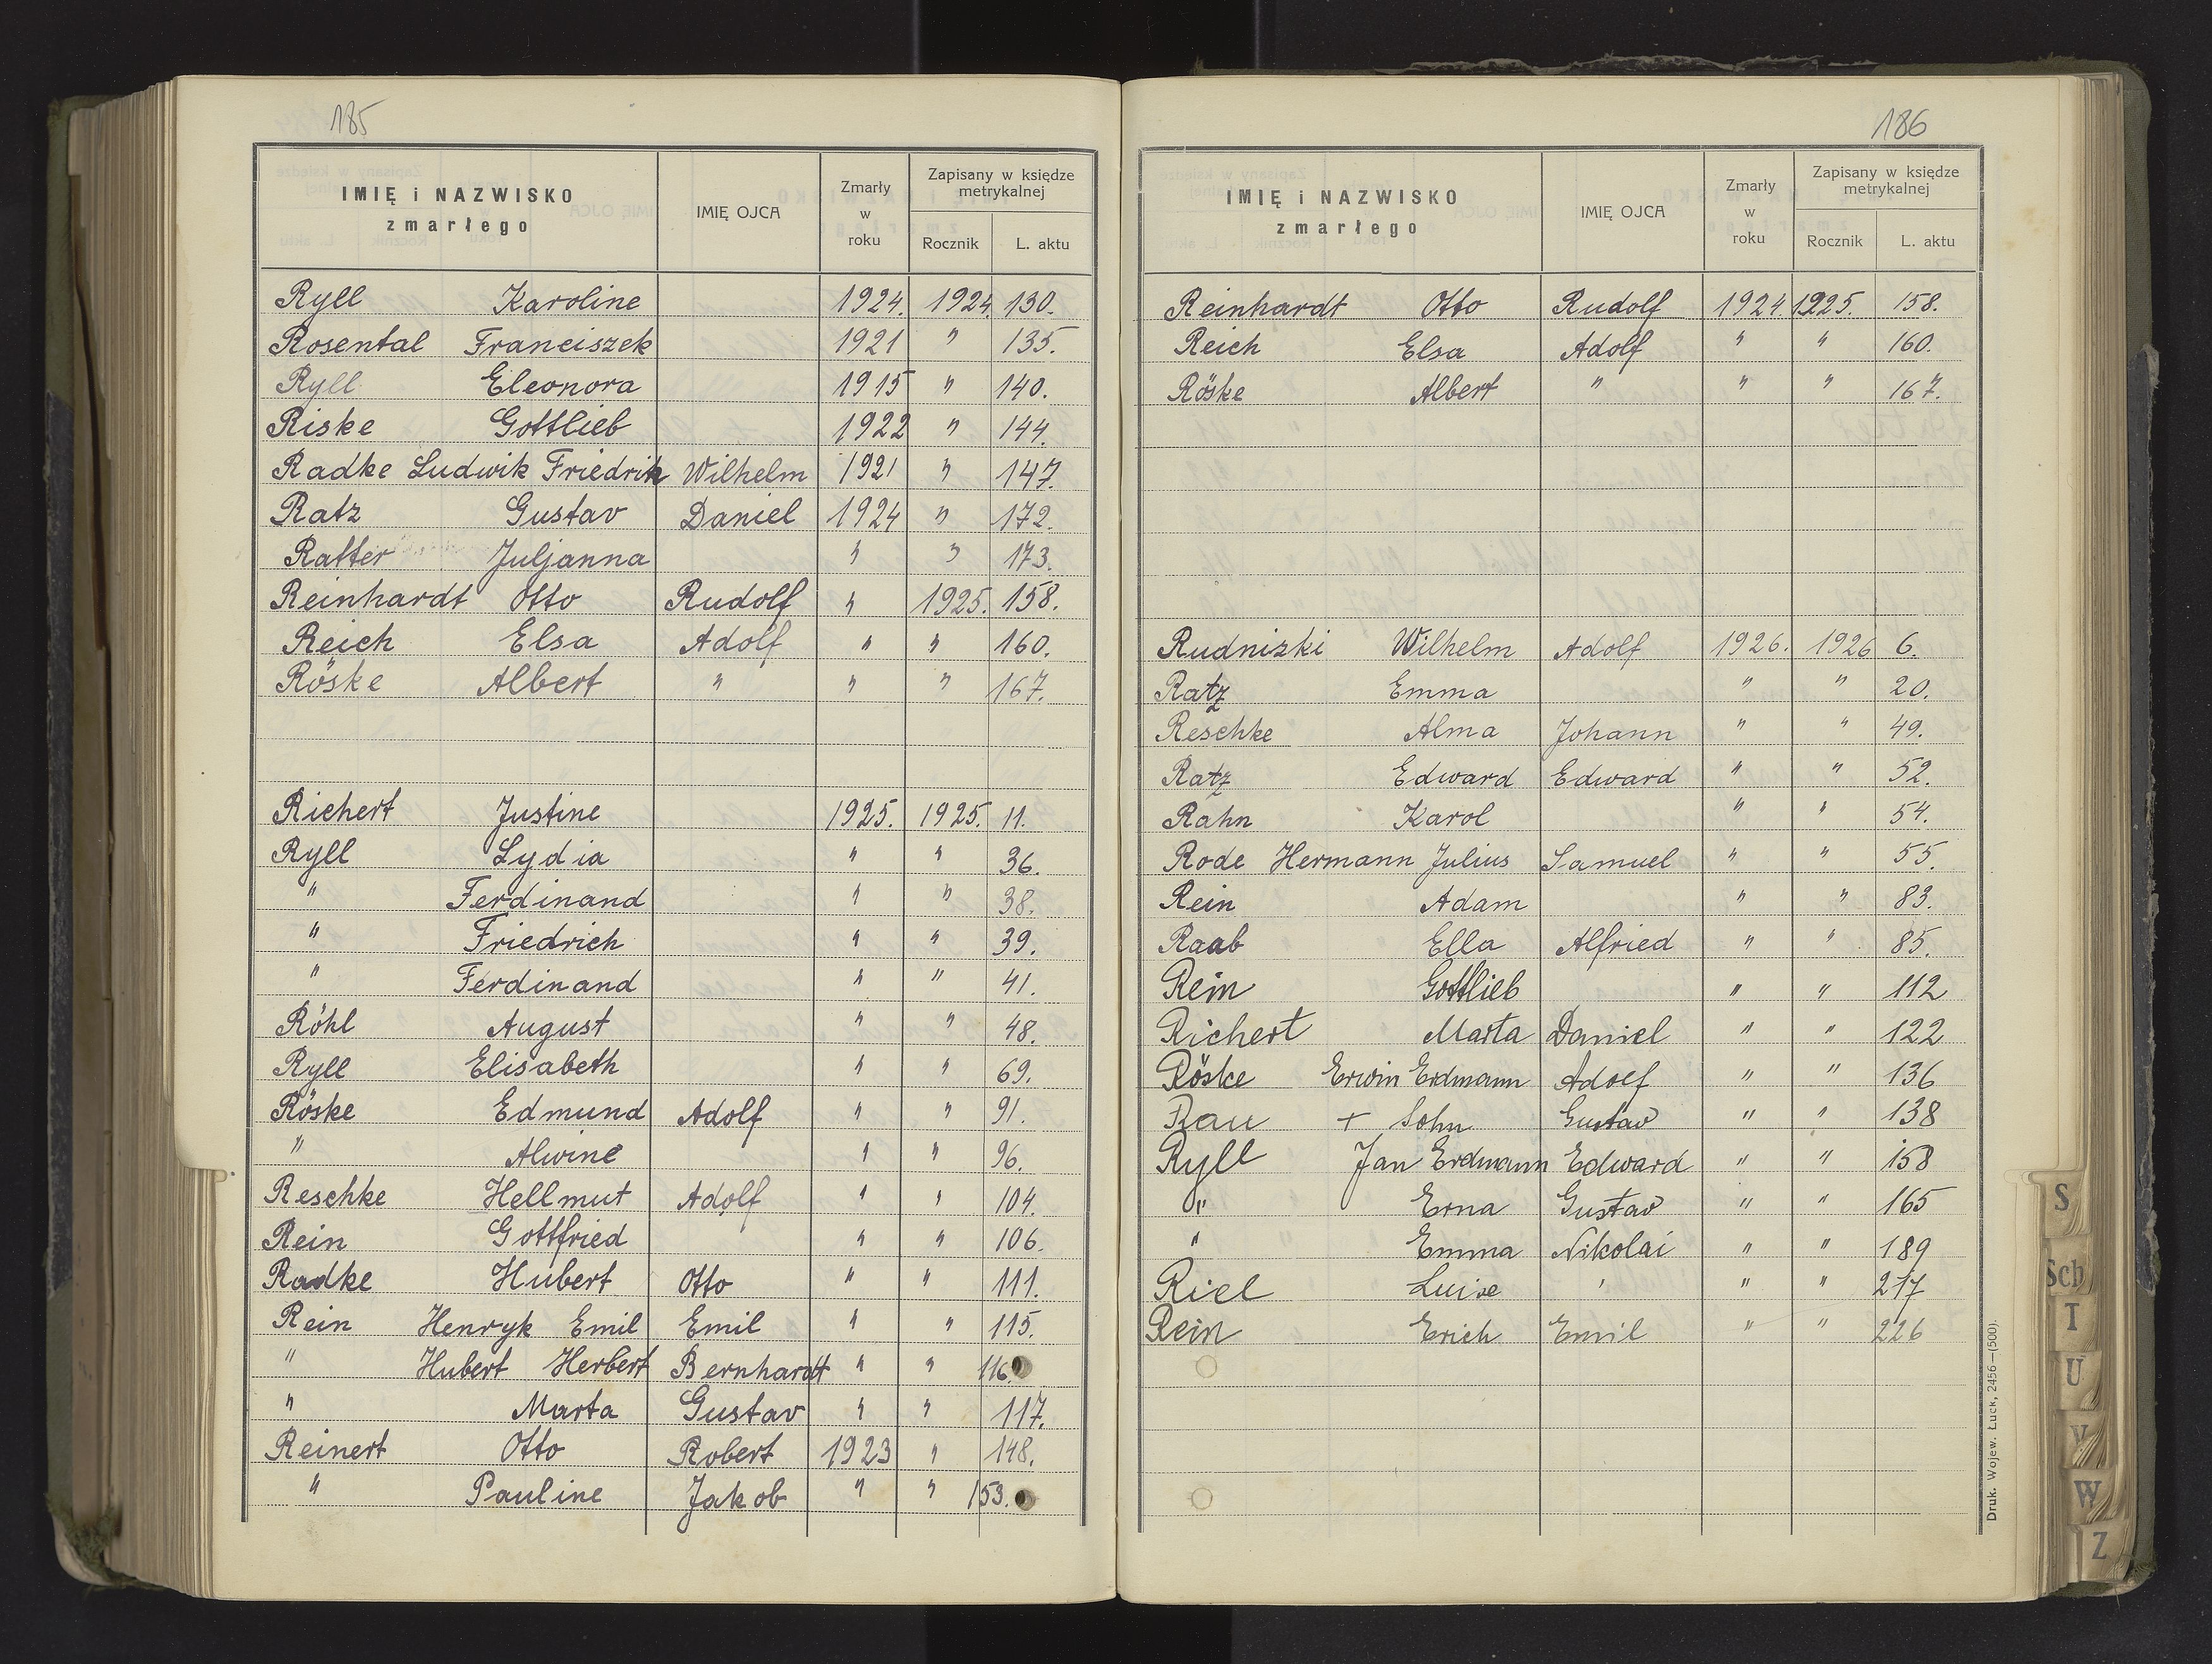 185
IMIĘ i NAZWISKO zmarłego IMIĘ OJCA Zmarły w roku Zapisany w księdze metrykalnej Rocznik L. aktu
Ryll Karoline 1924. 1924. 130.
Rosental Franciszek 1921 " 135.
Ryll Eleonora 1915 " 140.
Riske Gottlieb 1922 " 144.
Radke Ludwik Friedrich Wilhelm 1921 " 147.
Ratz Gustav Daniel 1924 " 172.
Ratter Juljanna " " 173.
Reinhardt Otto Rudolf " 1925. 158.
Reich Elsa Adolf " " 160.
Röske Albert " " " 167.
Richert Justine 1925. 1925. 11.
Ryll Lydia " " 36.
" Ferdinand " " 38.
" Friedrich " " 39.
" Ferdinand " " 41.
Röhl August " " 48.
Ryll Elisabeth " " 69.
Röske Edmund Adolf " " 91.
" Alwine " " 96.
Reschke Hellmut Adolf " " 104.
Rein Gottfried " " 106.
Radke Hubert Otto " " 111.
Rein Henryk Emil Emil " " 115.
" Hubert Herbert Bernhardt " " 116.
" Marta Gustav " " 117.
Reinert Otto Robert 1923 " 148.
" Pauline Jakob " " 153.
186
IMIĘ i NAZWISKO zmarłego IMIĘ OJCA Zmarły w roku Zapisany w księdze metrykalnej Rocznik L. aktu
Reinhardt Otto Rudolf 1924. 1925. 158.
Reich Elsa Adolf " " 160.
Röske Albert " " " 167.
Rudnizki Wilhelm Adolf 1926. 1926 6.
Ratz Emma " " 20.
Reschke Alma Johann " " 49.
Ratz Edward Edward " " 52.
Rahn Karol " " 54.
Rode Hermann Julius Samuel " " 55.
Rein Adam " " 83.
Raab Ella Alfried " " 85.
Rein Gottlieb " " 112
Richert Marta Daniel " " 122
Röske Erwin Erdmann Adolf " " 136
Rau + Sohn Gustav " " 138
Ryll Jan Erdmann Edward " " 158
" Erna Gustav " " 165
" Emma Nikolai " " 189
Riel Luise ' " " 217
Rein Erich Emil " " 226
Druk. Wojew. Łuck, 2456—(500).
S
Sch
T
U
V
W
Z